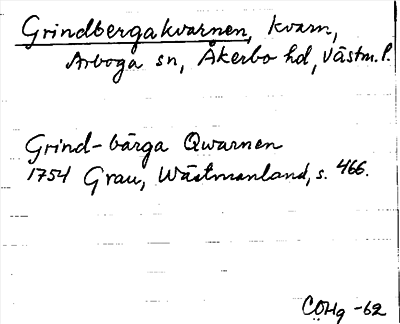 Grindbergakvarnen, kvarn,
Arboga sn, Åkerbo hd, Västm. l.
Grind-bärga Qwarnen
1754 Grau, Wästmanland, s. 466.
CÖHg -62